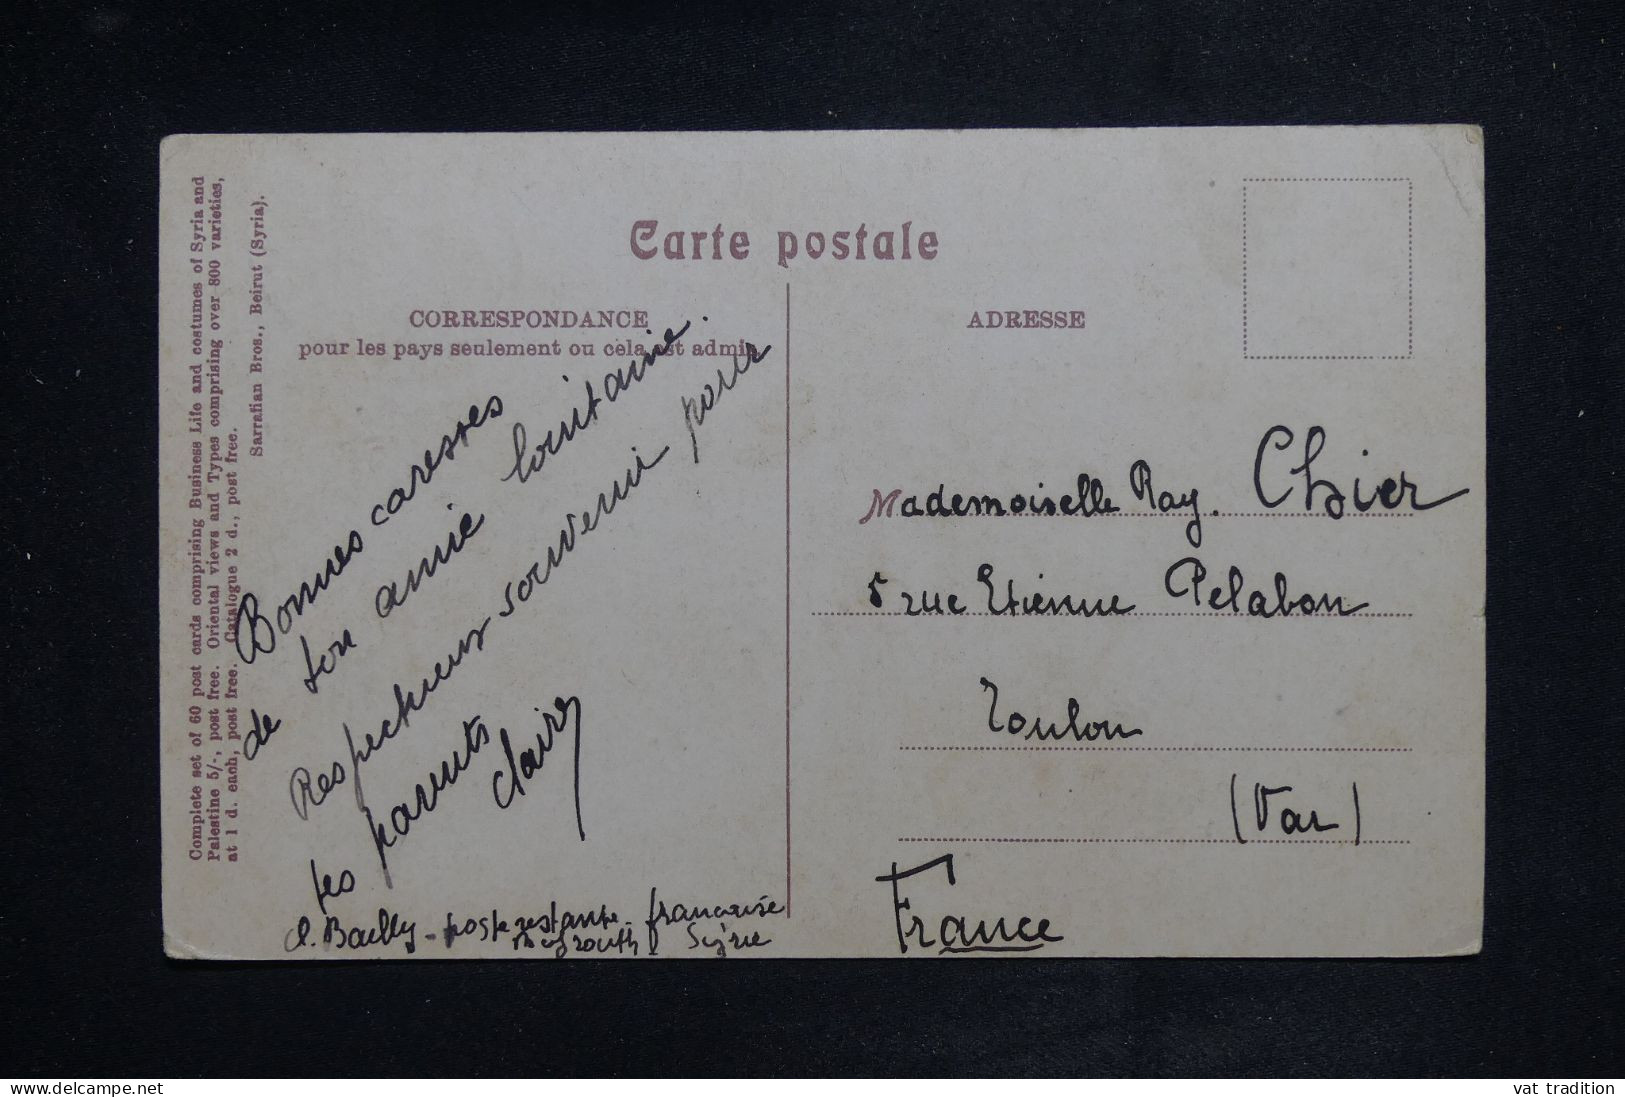 Complete set of 60 post cards comprising Business Life and costumes of Syria and
Palestine 5/-, post free. Oriental views and Types comprising over 800 varieties,
at 1 d. each, post free. Catalogue 2 d., post free.
Sarrafian Bros., Beirut (Syria).
Carte postale
CORRESPONDANCE
pour les pays seulement ou cela est admis
Bonnes caresses
de ton amie lointaine.
Respectueux souvenir pour
tes parents
Claire
C. Bailly - poste restante française
Beyrouth Syrie
ADRESSE
Mademoiselle Ray. Chier
5 rue Etienne Pelabon
Toulon
(Var)
France
www.delcampe.net
vat tradition